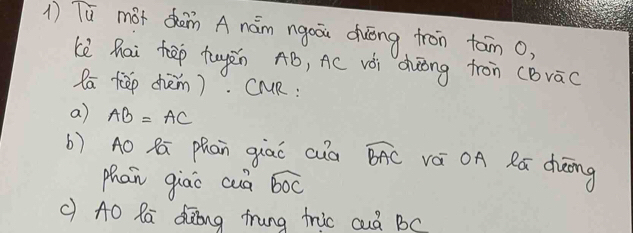 1) Từ một điểm A nằm ngoài đường tròn tâm O,
kẻ hai tiếp tuyến AB, AC với đường tròn (B và C
là tiếp điểm). CMR:
a) AB = AC
b) AO là phân giác của BAC và OA là đường
phân giác của BOC
c) AO là đường trung trực của BC